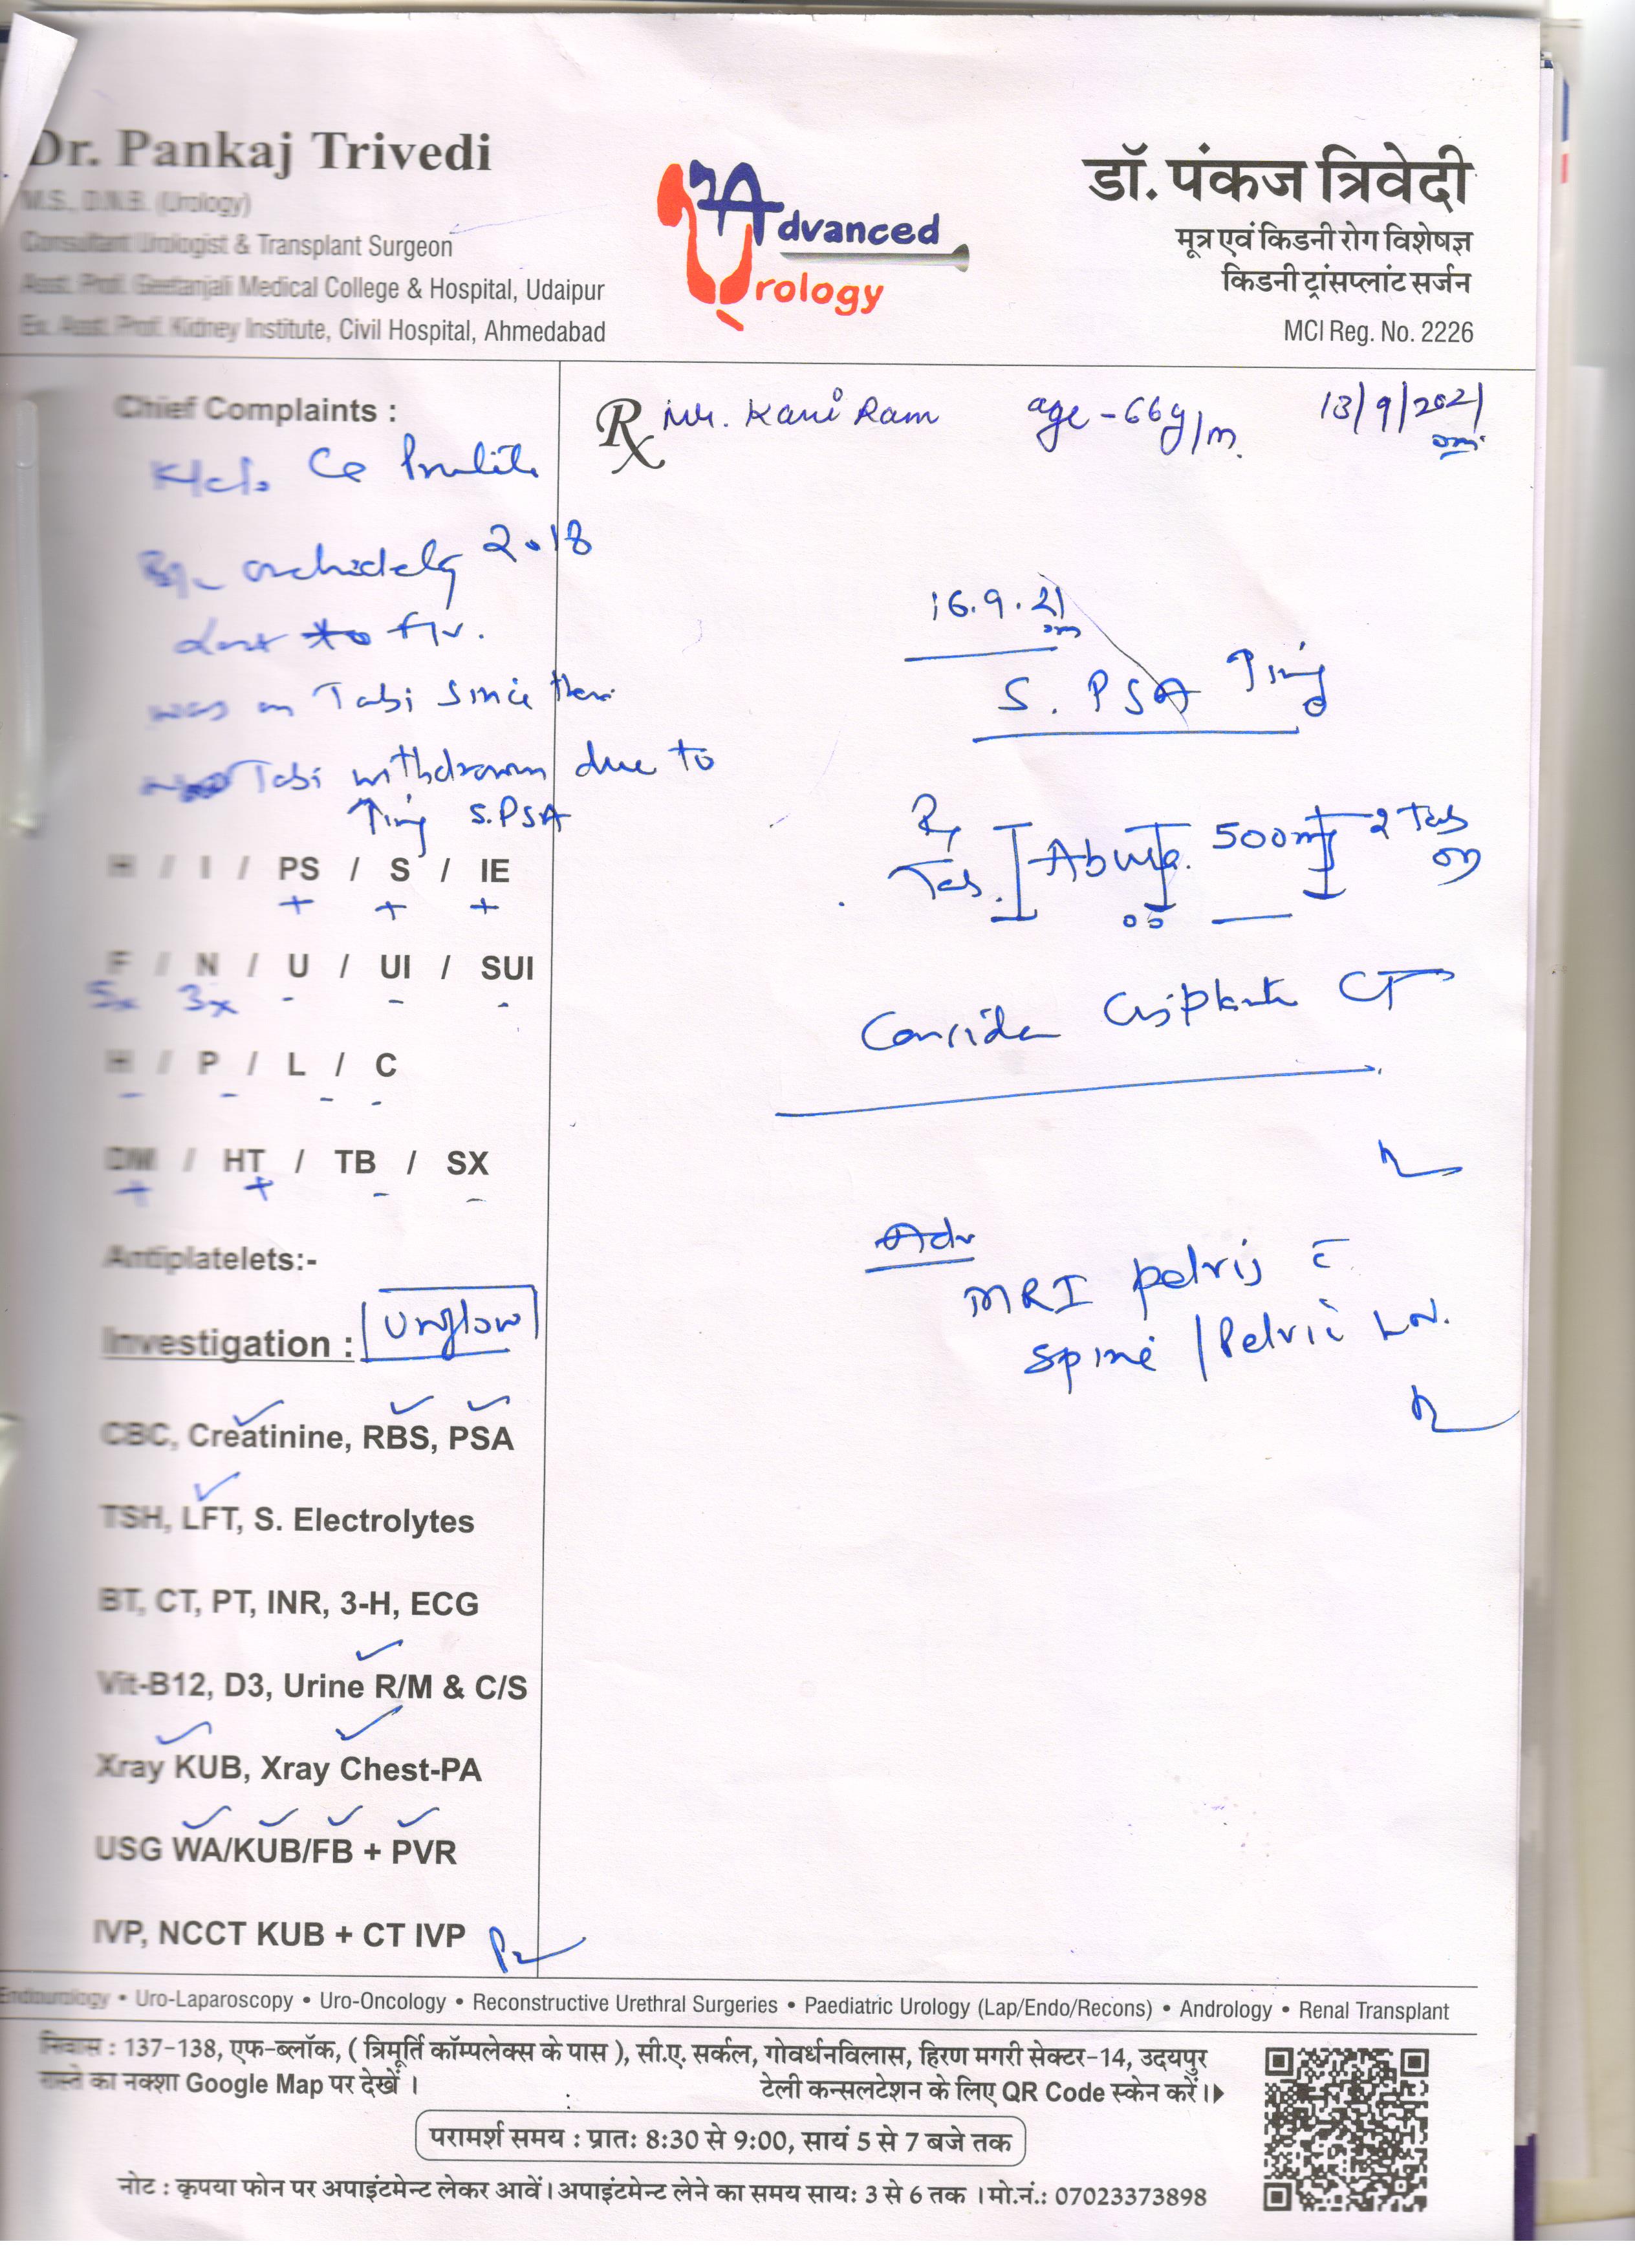 Dr. Pankaj Trivedi
M.S., D.N.B. (Urology)
Consultant Urologist & Transplant Surgeon
Asst. Prof. Geetanjali Medical College & Hospital, Udaipur
Ex. Asst. Prof. Kidney Institute, Civil Hospital, Ahmedabad
Advanced
Urology
डॉ. पंकज त्रिवेदी
मूत्र एवं किडनी रोग विशेषज्ञ
किडनी ट्रांसप्लांट सर्जन
MCI Reg. No. 2226
Rx Mr. Kani Ram age - 66y/m. 13/9/2021
Chief Complaints :
K/c/o Ca
2018
lost to f/u.
was on Tabi since then
Tabi withdrawn due to
↑ing S.PSA
H / I / PS / S / IE
+ + +
F / N / U / UI / SUI
5x 3x - - -
H / P / L / C
- - - -
DM / HT / TB / SX
+ + - -
Antiplatelets:-
Investigation : Uroflow
CBC, Creatinine, RBS, PSA
TSH, LFT, S. Electrolytes
BT, CT, PT, INR, 3-H, ECG
Vit-B12, D3, Urine R/M & C/S
Xray KUB, Xray Chest-PA
USG WA/KUB/FB + PVR
IVP, NCCT KUB + CT IVP
16.9.21
S. PSA ↑ing
Rx
Tab. 500mg 2 Tab
OD
Consider CT
Adv
MRI pelvis c̄
spine / Pelvic LN.
Endourology • Uro-Laparoscopy • Uro-Oncology • Reconstructive Urethral Surgeries • Paediatric Urology (Lap/Endo/Recons) • Andrology • Renal Transplant
निवास : 137-138, एफ-ब्लॉक, ( त्रिमूर्ति कॉम्पलेक्स के पास ), सी.ए. सर्कल, गोवर्धनविलास, हिरण मगरी सेक्टर-14, उदयपुर
रास्ते का नक्शा Google Map पर देखें । टेली कन्सलटेशन के लिए QR Code स्केन करें।
परामर्श समय : प्रातः 8:30 से 9:00, सायं 5 से 7 बजे तक
नोट : कृपया फोन पर अपाइंटमेन्ट लेकर आवें। अपाइंटमेन्ट लेने का समय सायः 3 से 6 तक । मो.नं.: 07023373898